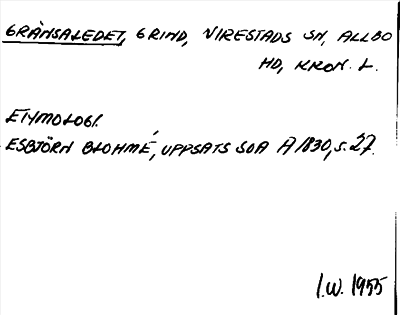 GRÄNSALEDET, GRIND, VIRESTADS SN, ALLBO
HD, KRON. L.
ETYMOLOGI.
ESBJÖRN BLOHMÉ, UPPSATS SOA A 1830, S. 27.
I.W. 1955